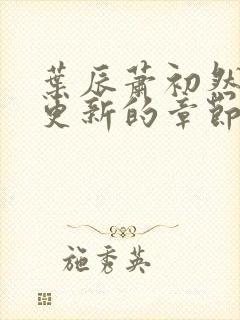 葉辰蕭初然
更新的章節
施秀英